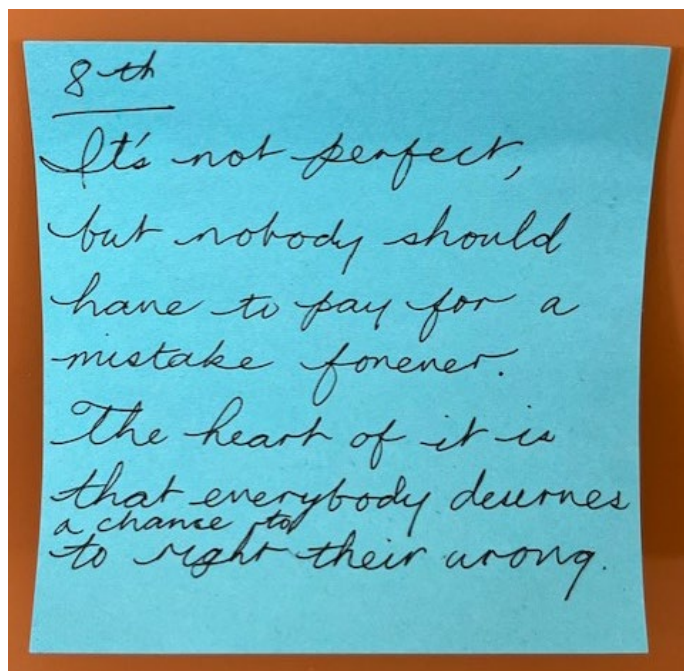 8th
It's not perfect,
but nobody should
have to pay for a
mistake forever.
The heart of it is
that everybody deserves
a chance to
to right their wrong.